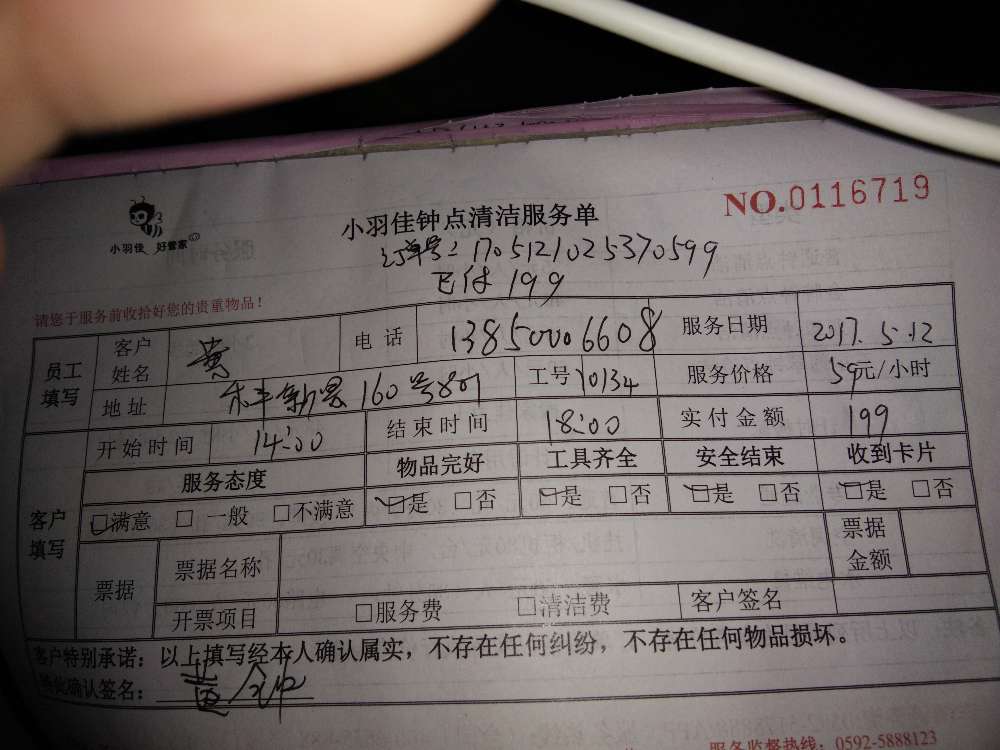 小羽佳 好管家
NO.0116719
小羽佳钟点清洁服务单
订单号：1705121025370599
已付199
请您于服务前收拾好您的贵重物品！
员工填写 客户姓名 黄 电话 13850006608 服务日期 2017.5.12
地址 禾丰新景160号801 工号 10134 服务价格 59元/小时
开始时间 14:00 结束时间 18:00 实付金额 199
客户填写 服务态度 物品完好 工具齐全 安全结束 收到卡片
满意 一般 不满意 是 否 是 否 是 否 是 否
票据 票据名称 票据金额
开票项目 服务费 清洁费 客户签名
客户特别承诺：以上填写经本人确认属实，不存在任何纠纷，不存在任何物品损坏。
特此确认签名：黄
服务监督热线：0592-5888123